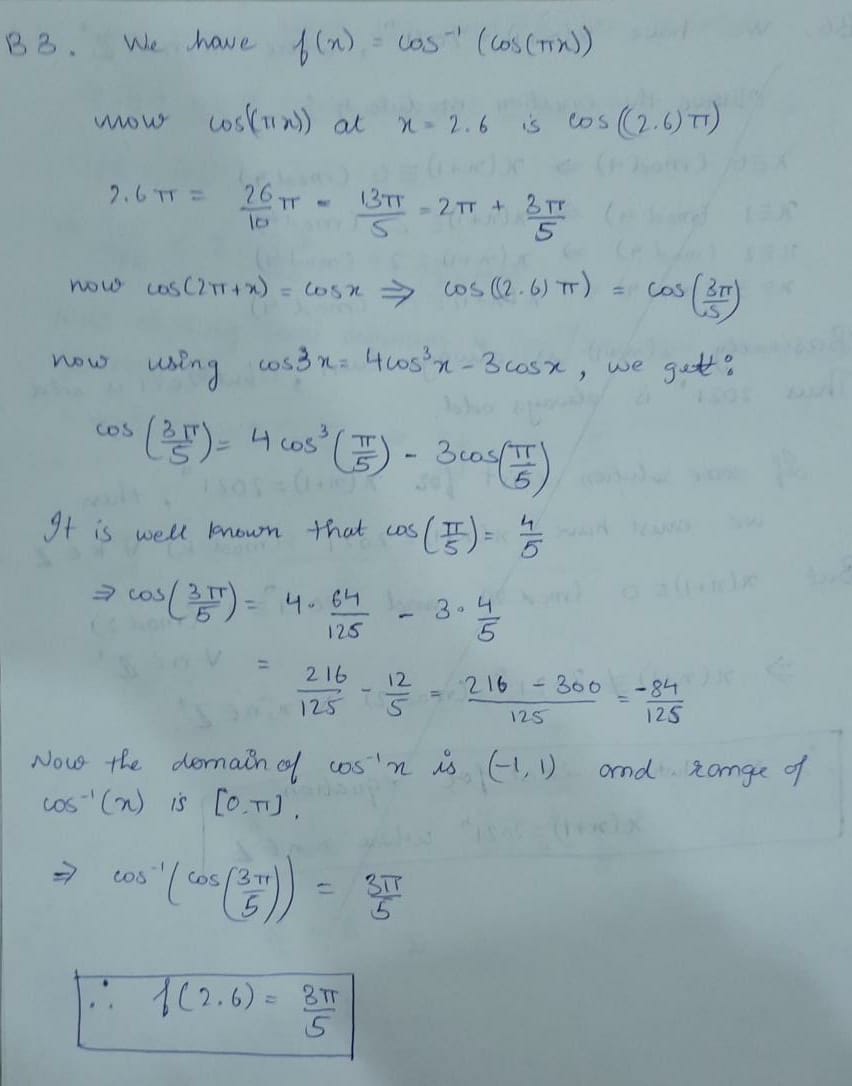 B3. We have f(x) = cos⁻¹(cos(πx))
now cos(πx)) at x = 2.6 is cos((2.6)π)
2.6π = 26/10 π = 13π/5 = 2π + 3π/5
now cos(2π+x) = cosx ⇒ cos((2.6)π) = cos(3π/5)
now using cos3x = 4cos³x - 3cosx, we get:
cos(3π/5) = 4cos³(π/5) - 3cos(π/5)
It is well known that cos(π/5) = 4/5
⇒ cos(3π/5) = 4·64/125 - 3·4/5
= 216/125 - 12/5 = 216 - 300/125 = -84/125
Now the domain of cos⁻¹x is (-1, 1) and range of
cos⁻¹(x) is [0, π].
⇒ cos⁻¹(cos(3π/5)) = 3π/5
∴ f(2.6) = 3π/5